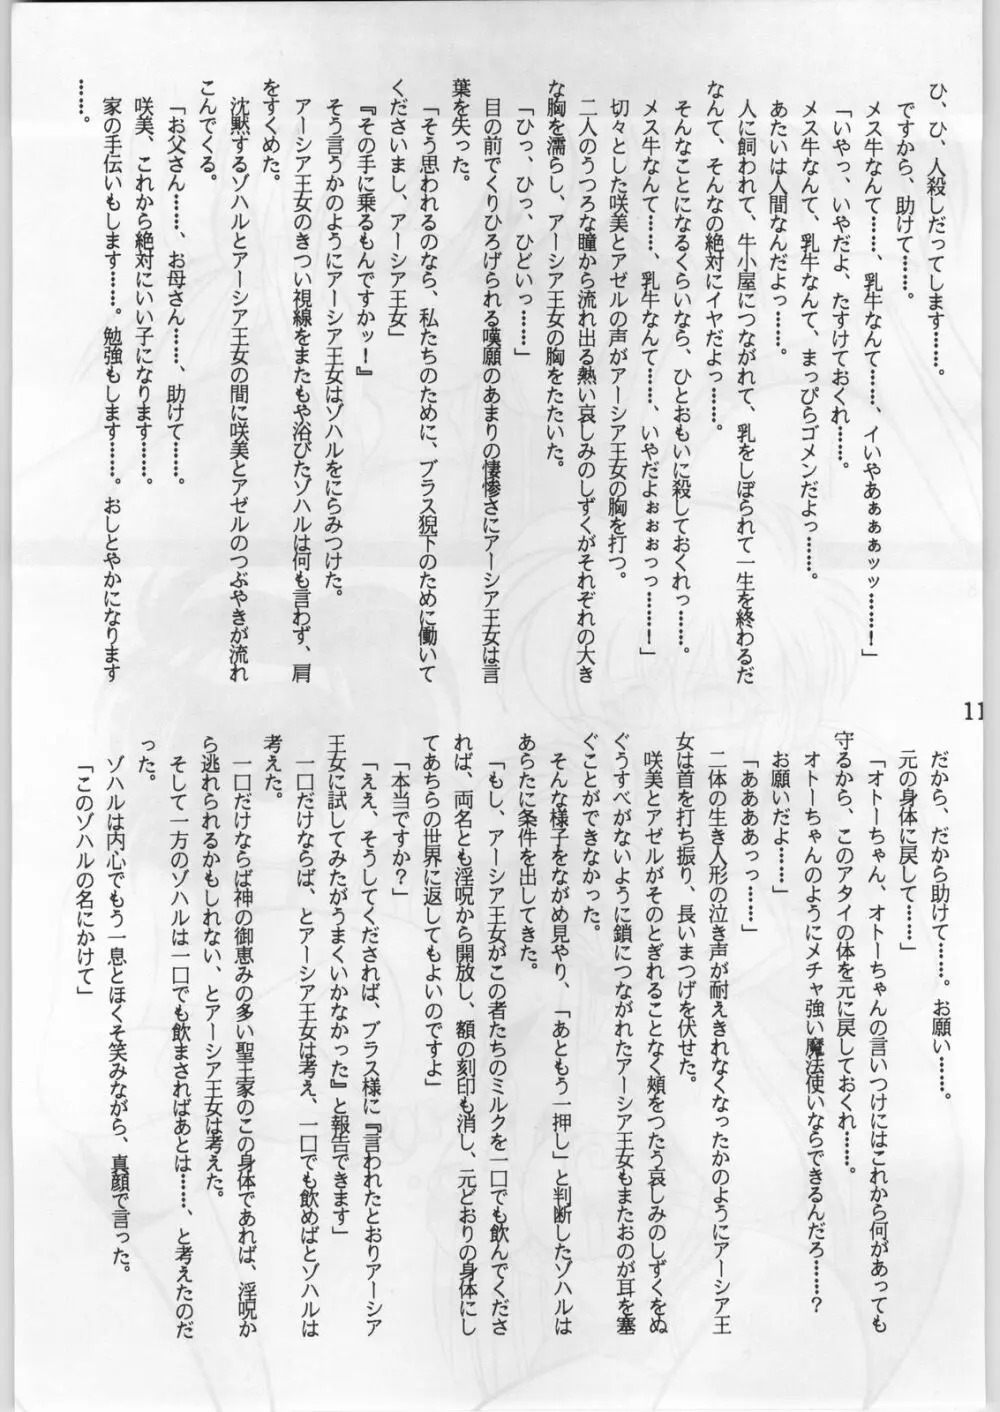 ひ、ひ、人殺しだってします……。
ですから、助けて……。
メス牛なんて……、乳牛なんて……、イいやあぁぁぁッッ……！」
「いやっ、いやだよ、たすけておくれ……。
メス牛なんて、乳牛なんて、まっぴらゴメンだよっ……。
あたいは人間なんだよっ……。
人に飼われて、牛小屋につながれて、乳をしぼられて一生を終わるだ
なんて、そんなの絶対にイヤだよっ……。
そんなことになるくらいなら、ひとおもいに殺しておくれっ……。
メス牛なんて……、乳牛なんて……、いやだよぉぉぉっっ……！」
切々とした咲美とアゼルの声がアーシア王女の胸を打つ。
二人のうつろな瞳から流れ出る熱い哀しみのしずくがそれぞれの大き
な胸を濡らし、アーシア王女の胸をたたいた。
「ひっ、ひっ、ひどいっ……」
目の前でくりひろげられる嘆願のあまりの悽惨さにアーシア王女は言
葉を失った。
「そう思われるのなら、私たちのために、ブラス猊下のために働いて
くださいまし、アーシア王女」
『その手に乗るもんですかッ！』
そう言うかのようにアーシア王女はゾハルをにらみつけた。
アーシア王女のきつい視線をまたもや浴びたゾハルは何も言わず、肩
をすくめた。
沈黙するゾハルとアーシア王女の間に咲美とアゼルのつぶやきが流れ
こんでくる。
「お父さん……、お母さん……、助けて……。
咲美、これから絶対にいい子になります……。
家の手伝いもします……。勉強もします……。おしとやかになります
……。
11
だから、だから助けて……。お願い……。
元の身体に戻して……」
「オトーちゃん、オトーちゃんの言いつけにはこれから何があっても
守るから、このアタイの体を元に戻しておくれ……。
オトーちゃんのようにメチャ強い魔法使いならできるんだろ……？
お願いだよ……」
「ああああっっ……」
二体の生き人形の泣き声が耐えきれなくなったかのようにアーシア王
女は首を打ち振り、長いまつげを伏せた。
咲美とアゼルがそのとぎれることなく頬をつたう哀しみのしずくをぬ
ぐうすべがないように鎖につながれたアーシア王女もまたおのが耳を塞
ぐことができなかった。
そんな様子をながめ見やり、「あともう一押し」と判断したゾハルは
あらたに条件を出してきた。
「もし、アーシア王女がこの者たちのミルクを一口でも飲んでくださ
れば、両名とも淫呪から開放し、額の刻印も消し、元どおりの身体にし
てあちらの世界に返してもよいのですよ」
「本当ですか？」
「ええ、そうしてくだされば、ブラス様に『言われたとおりアーシア
王女に試してみたがうまくいかなかった』と報告できます」
一口だけならば、とアーシア王女は考え、一口でも飲めばとゾハルは
考えた。
一口だけならば神の御恵みの多い聖王家のこの身体であれば、淫呪か
ら逃れられるかもしれない、とアーシア王女は考えた。
そして一方のゾハルは一口でも飲まされればあとは……、と考えたのだ
った。
ゾハルは内心でもう一息とほくそ笑みながら、真顔で言った。
「このゾハルの名にかけて」